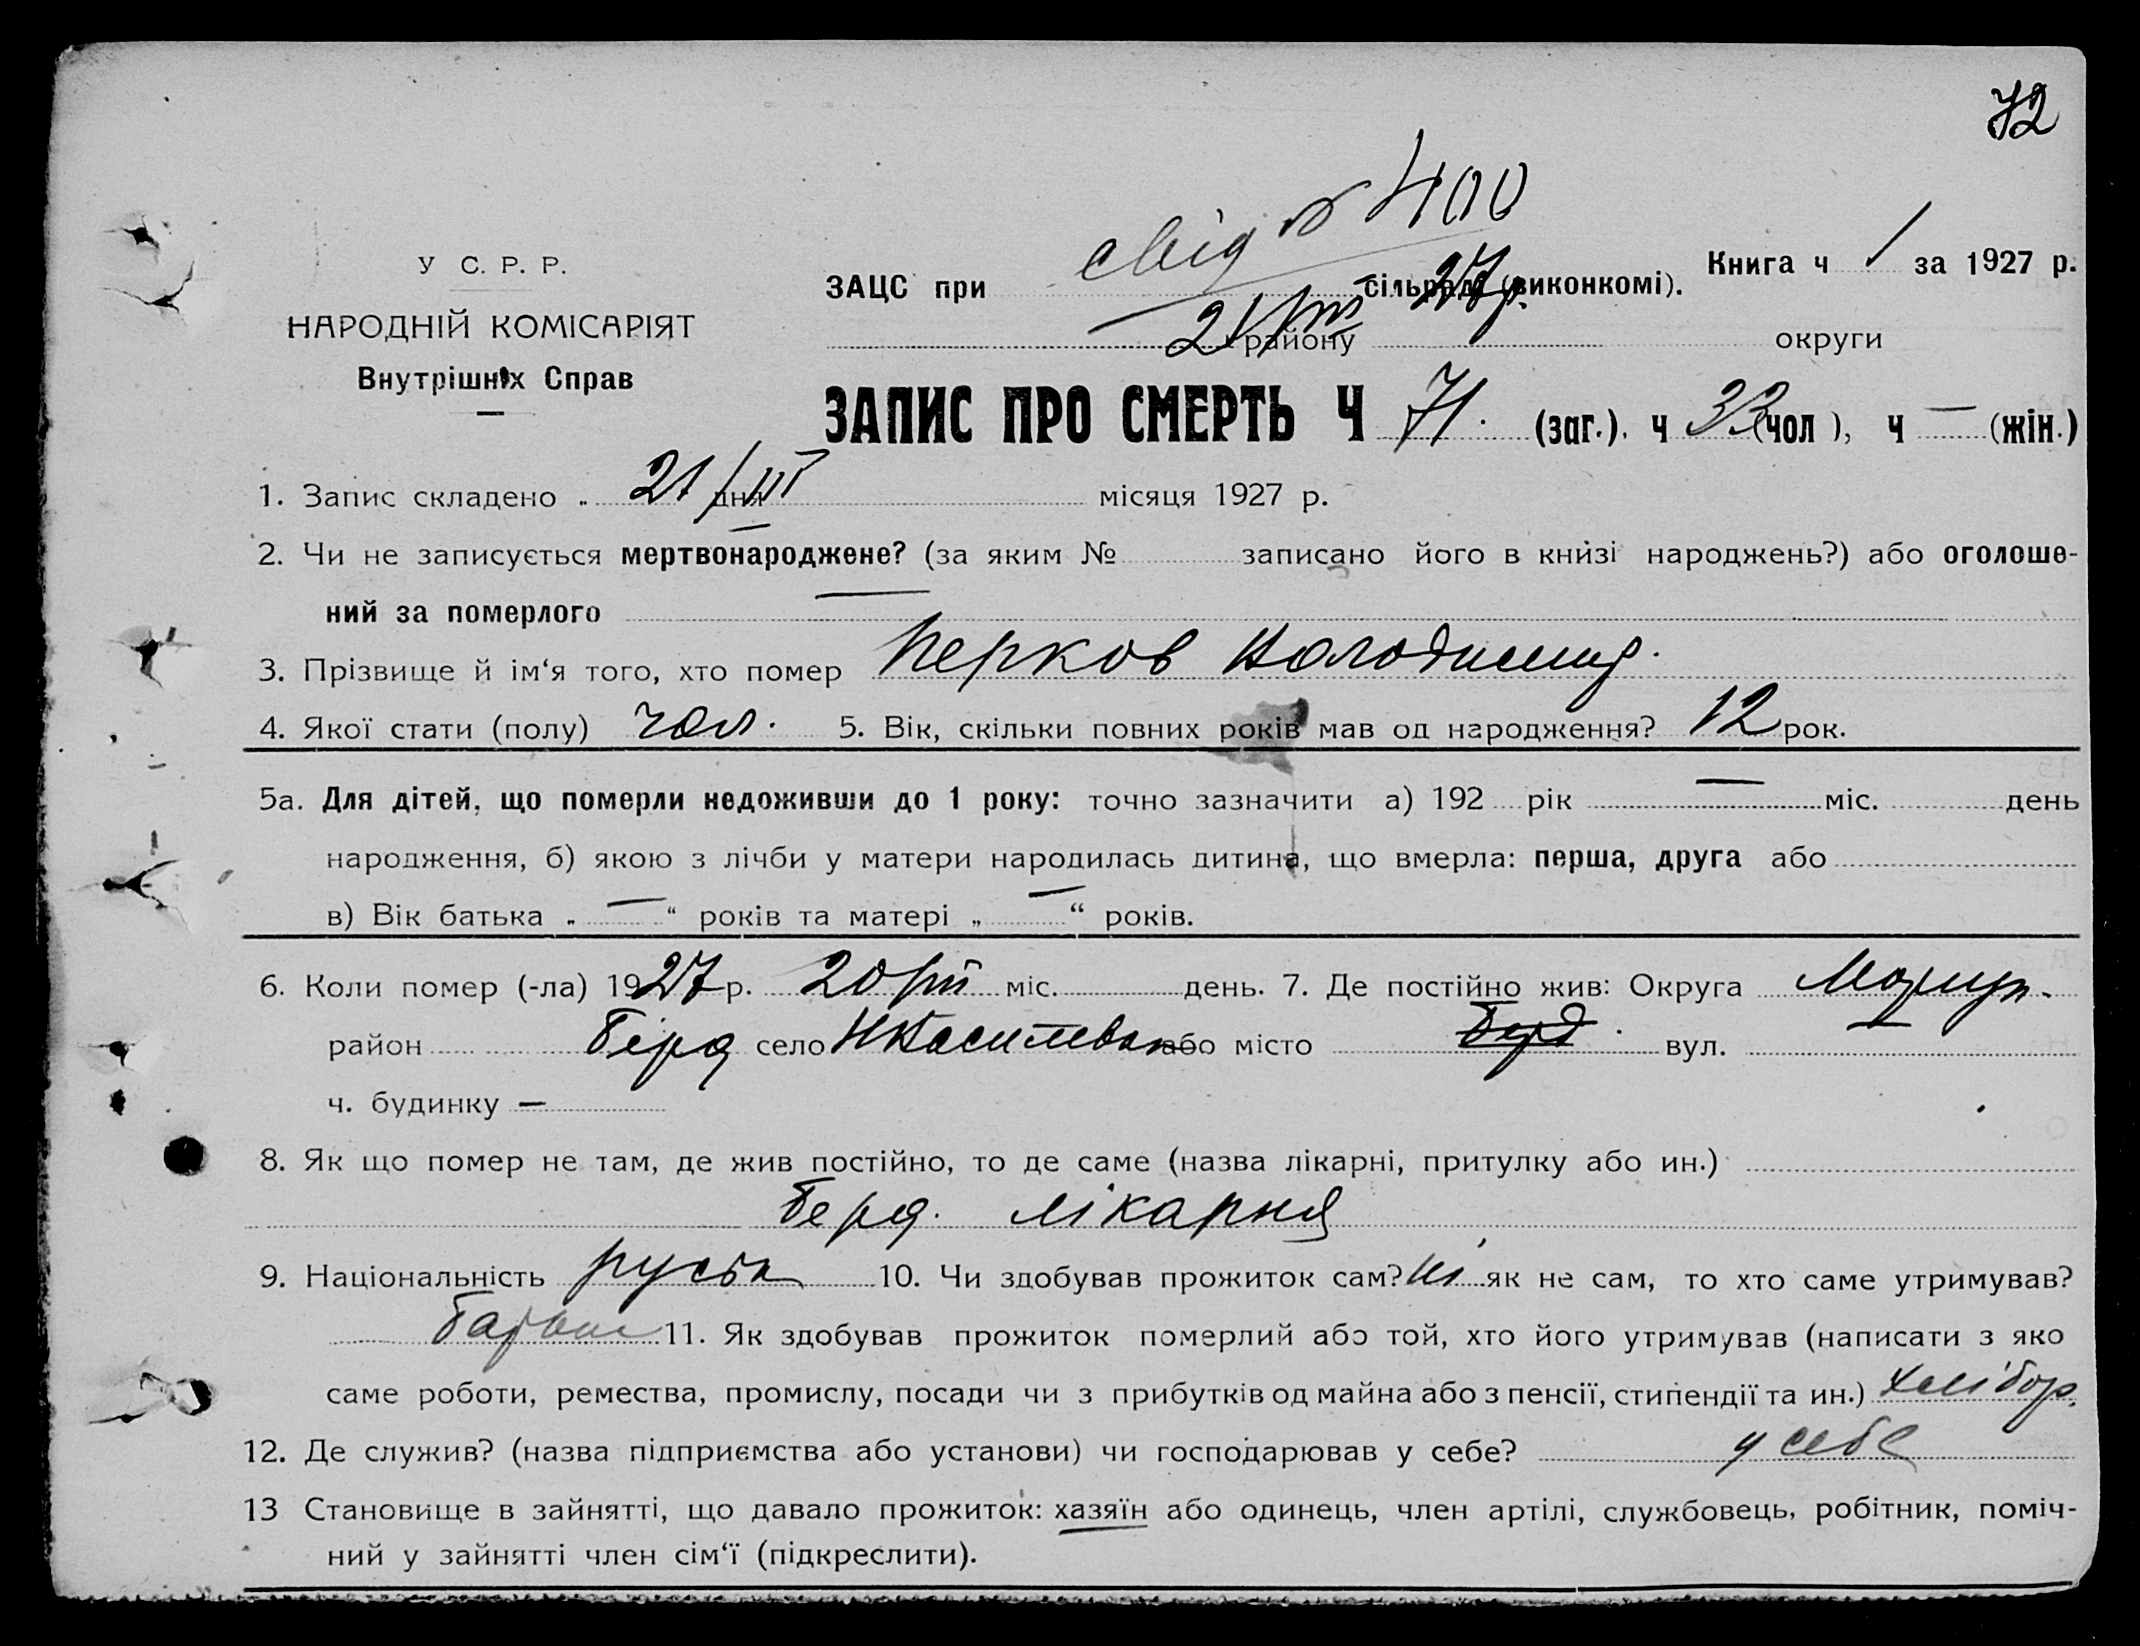 72
свід № 400
У С. Р. Р.
НАРОДНІЙ КОМІСАРІЯТ
Внутрішніх Справ
Книга ч 1 за 1927 р.
ЗАЦС при сільраді (виконкомі).
21/III 27 р.
району округи
ЗАПИС ПРО СМЕРТЬ Ч 71. (заг.). ч 33 (чол ), ч — (жін.)
1. Запис складено „ 21/III дня місяця 1927 р.
2. Чи не записується мертвонароджене? (за яким № — записано його в книзі народжень?) або оголоше-
ний за померлого —
3. Прізвище й ім‘я того, хто помер Перков Володимир.
4. Якої стати (полу) чол. 5. Вік, скільки повних років мав од народження? 12 рок.
5а. Для дітей, що померли недоживши до 1 року: точно зазначити а) 192 рік — міс. день
народження, б) якою з лічби у матери народилась дитина, що вмерла: перша, друга або
в) Вік батька „ — “ років та матері „ — “ років.
6. Коли помер (-ла) 1927 р. 20/III міс. день. 7. Де постійно жив: Округа Маріуп.
район Берд село НВасилевка або місто Берд вул. —
ч. будинку —
8. Як що помер не там, де жив постійно, то де саме (назва лікарні, притулку або ин.)
Берд. лікарня
9. Національність руська 10. Чи здобував прожиток сам? Ні як не сам, то хто саме утримував?
батько 11. Як здобував прожиток померлий або той, хто його утримував (написати з яко
саме роботи, ремества, промислу, посади чи з прибутків од майна або з пенсії, стипендії та ин.) хлібор.
12. Де служив? (назва підприємства або установи) чи господарював у себе? у себе
13 Становище в зайнятті, що давало прожиток: хазяїн або одинець, член артілі, службовець, робітник, поміч-
ний у зайнятті член сім‘ї (підкреслити).